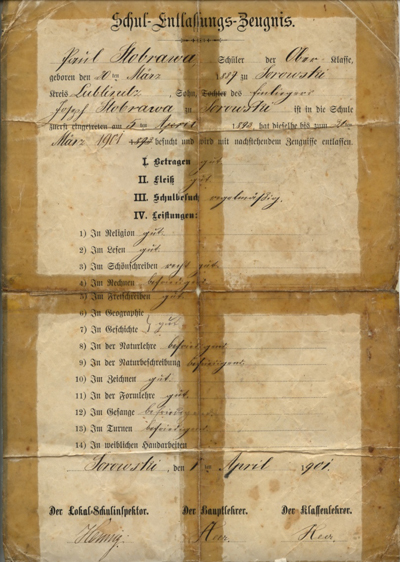 Schul-Entlassungs-Zeugnis.
Paul Stobrawa Schüler der Ober-Klasse,
geboren den 20ten März 1887 zu Sorowski
Kreis Lublinitz, Sohn, Tochter des
Josef Stobrawa in Sorowski ist in die Schule
zuerst eingetreten am 5 April 1893, hat dieselbe bis zum
März 1901 189 besucht und wird mit nachstehendem Zeugnisse entlassen.
I. Betragen gut.
II. Fleiß gut.
III. Schulbesuch regelmäßig.
IV. Leistungen:
1) In Religion gut.
2) Im Lesen gut.
3) Im Schönschreiben recht gut.
4) Im Rechnen befriedigend.
5) Im Freischreiben gut.
6) In Geographie
7) In Geschichte } gut.
8) In der Naturlehre befriedigend.
9) In der Naturbeschreibung befriedigend.
10) Im Zeichnen gut.
11) In der Formlehre gut.
12) Im Gesange befriedigend.
13) Im Turnen befriedigend.
14) In weiblichen Handarbeiten
Sorowski, den 1ten April 1901.
Der Lokal-Schulinspektor. Der Hauptlehrer. Der Klassenlehrer.